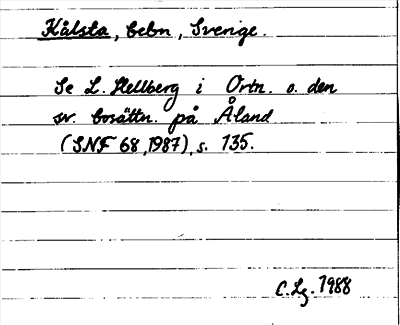 Kålsta, bebn, Sverige.
Se L. Hellberg i Ortn. o. den
sv. bosättn. på Åland
(SNF 68, 1987), s. 135.
C. Lg. 1988